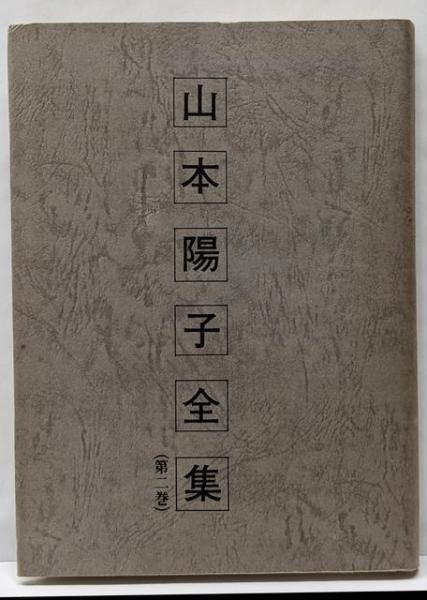 山本陽子全集
(第二巻)